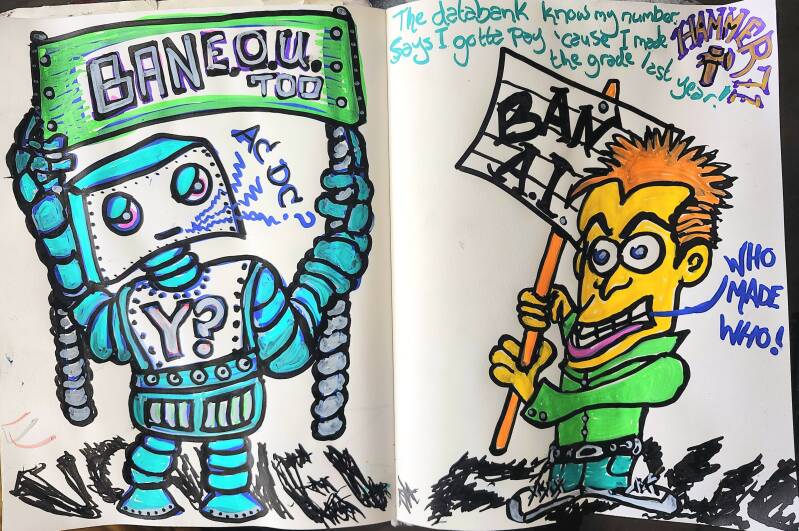 BAN E.O.U.
TOO
AC DC?
Y?
The databank know my number
Says I gotta Pay 'cause I made
the grade last year!!
HAMMERTIE
BAN
A.I.
WHO
MADE
WHO!